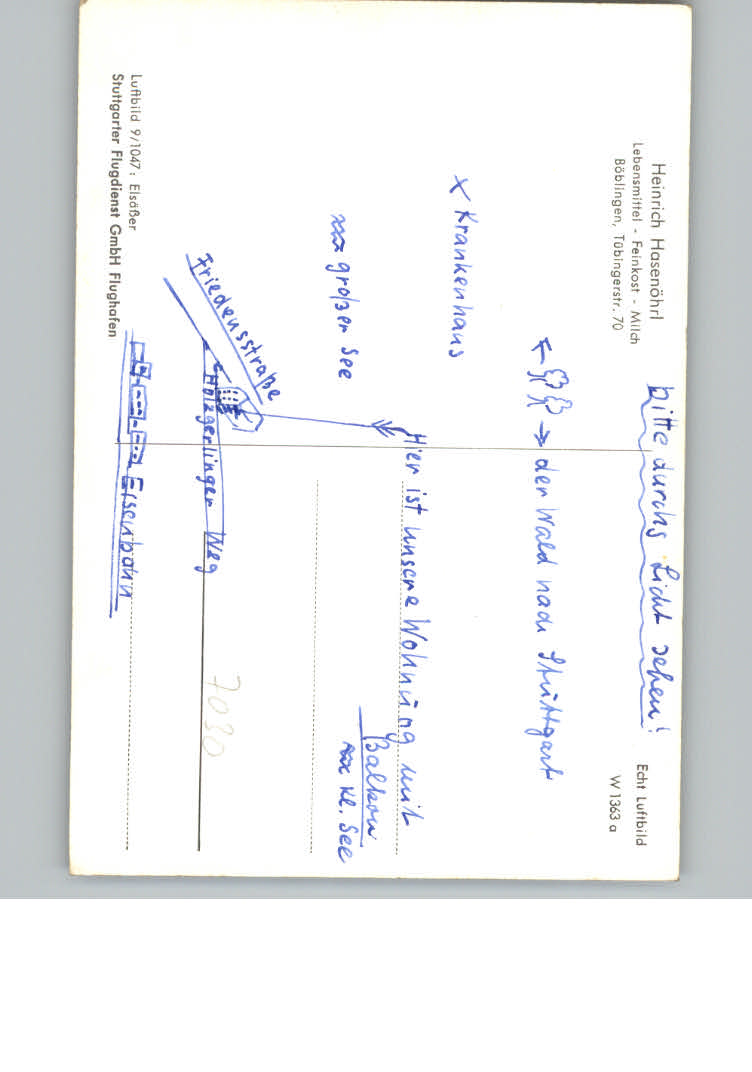 Heinrich Hasenöhrl
Lebensmittel - Feinkost - Milch
Böblingen, Tübingerstr. 70
bitte durchs Licht sehen!
Echt Luftbild
W 1363 a
← → der Wald nach Stuttgart
x Krankenhaus
Hier ist unsere Wohnung mit
Balkon
xxx großer See
xxx kl. See
Friedensstraße
Holzgerlinger Weg
7030
Eisenbahn
Luftbild 9/1047: Elsäßer
Stuttgarter Flugdienst GmbH Flughafen